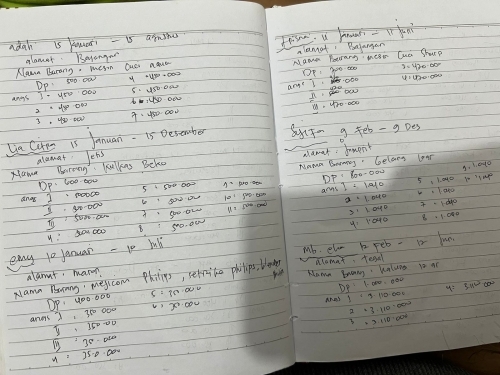 adah 15 Januari - 15 agustus
alamat : Bajangan
Nama Barang : mesin Cuci aqua
Dp : 500.000
angs I = 450.000 4 = 450.000
2 = 450.000 5 = 450.000
3 = 450.000 6 = 450.000
7 = 450.000
15 Januari - 15 Desember
alamat : Jetis
Nama Barang : Kulkas Beko
DP : 600.000
angs I = 500000 5 : 500.000 9 = 500.000
II = 500.000 6 : 500.000 10 = 500.000
III = 500.000 7 = 500.000 11 = 500.000
4 = 500.000 8 : 500.000
emy 10 Januari - 10 Juli
alamat :
Nama Barang : mejicom Philips, setrika philips, blender
DP : 400.000
angs I : 350.000 5 : 350.000
II : 350.00 6 : 350.000
III : 350.00
4 : 350.000
11 Januari - 11 Juni
alamat : Bajangan
Nama Barang : mesin Cuci Sharp
DP : 500.000
angs I : 3 : 420.000
II : 4 : 420.000
III : 420.000
9 Feb - 9 Des
alamat :
Nama Barang : Gelang
DP : 800.000
angs I = 1.040 5 : 1.040 9 : 1.040
2 = 1.040 6 : 1.040 10 : 1.040
3 : 1.040 7 : 1.040
4 : 1.040 8 : 1.040
Mb. 12 Feb - 12 Juni
alamat : Tegal
Nama Barang : Kalung 10 gr
DP : 1.000.000
angs I : 3.110.000 4 : 3.110.000
2 = 3.110.000
3 = 3.110.000